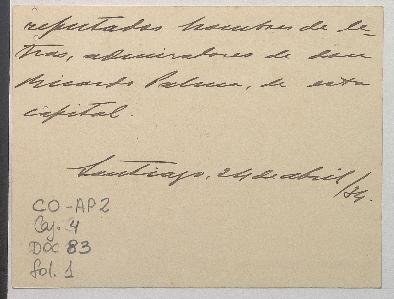 reputados hombres de le-
tras, admiradores de don
Ricardo Palma, de esta
capital.
Santiago, 24 de abril/34.
CO-AP2
Caj. 4
DOC 83
Fol. 1